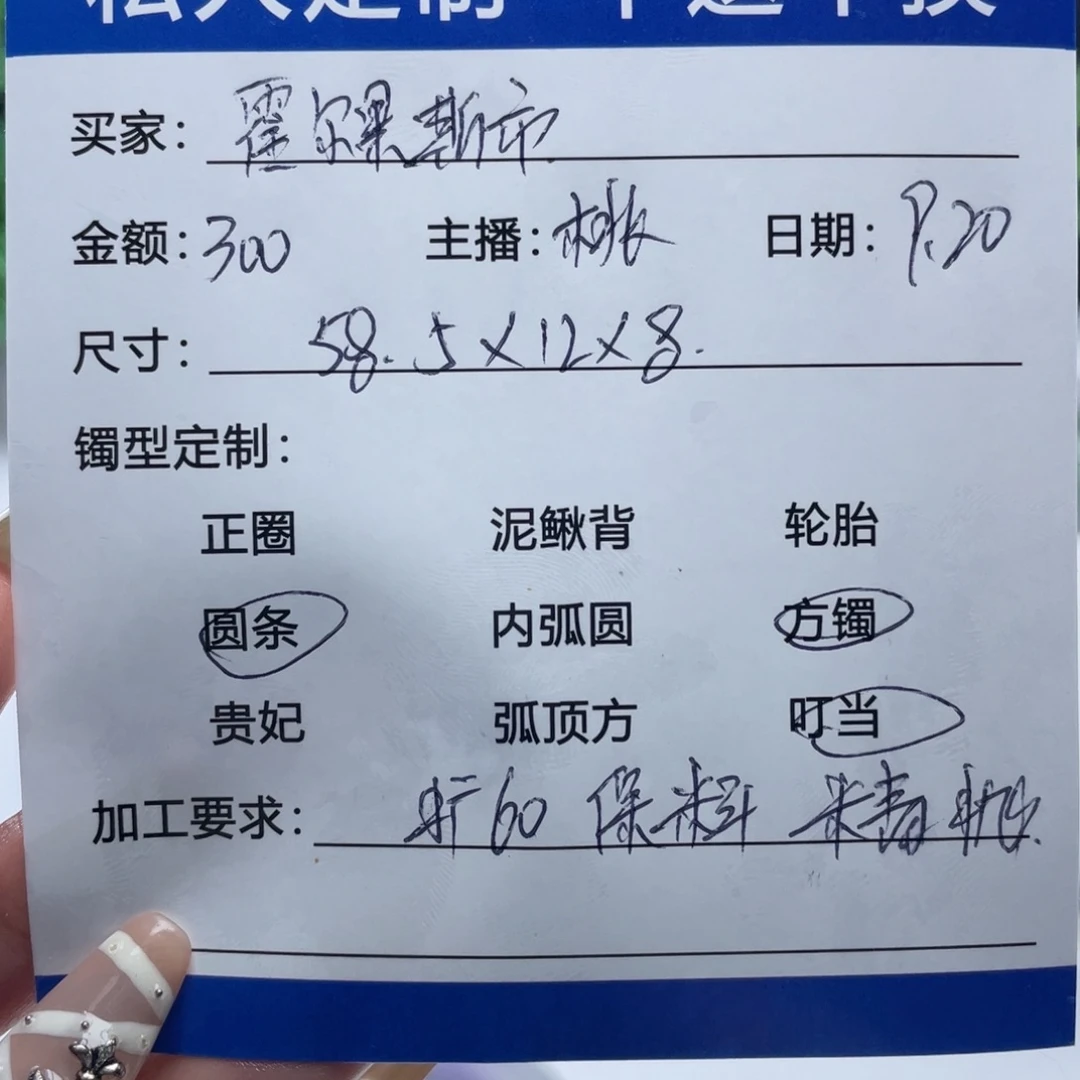 私人定制 不退不换
买家：霍尔果斯市
金额：300 主播：桃 日期：9.20
尺寸：58.5×12×8.
镯型定制：
正圈 泥鳅背 轮胎
圆条 内弧圆 方镯
贵妃 弧顶方 叮当
加工要求：60 保料 精